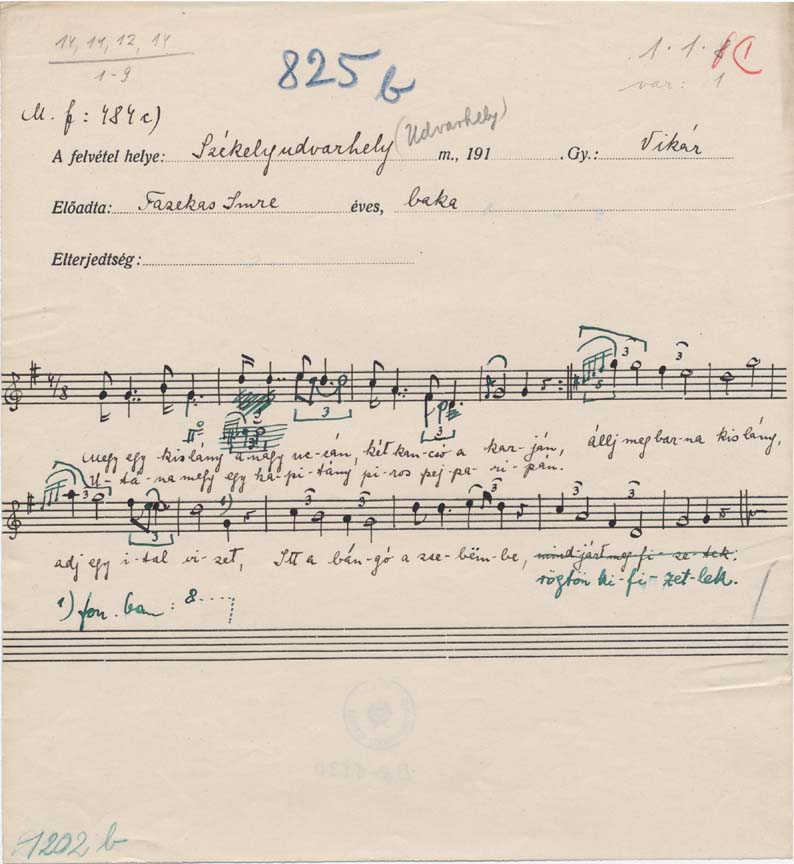 14, 14, 12, 14
1-9
825 b
1. 1. 1
var: 1
M. f: 484 c)
A felvétel helye: Székelyudvarhely (Udvarhely) m., 191 . Gy.: Vikár
Előadta: Fazekas Imre éves, baka
Elterjedtség:
4/8
3
3
3
3
5
3
3
Megy egy kislány a nagy uccán, két kancsó a kar-ján, állj meg bar-na kis lány,
U-tá-na megy egy ka-pi-tány pi-ros pej-pa-ri-pán.
3
3
1)
3
3
3
3
3
adj egy i-tal vi-zet, Itt a bán-gó a zse-bëm-be, mind-járt meg-fi-ze-tek.
rögtön ki-fi-zet-lek.
1) fon. ban: 8----
1202 b